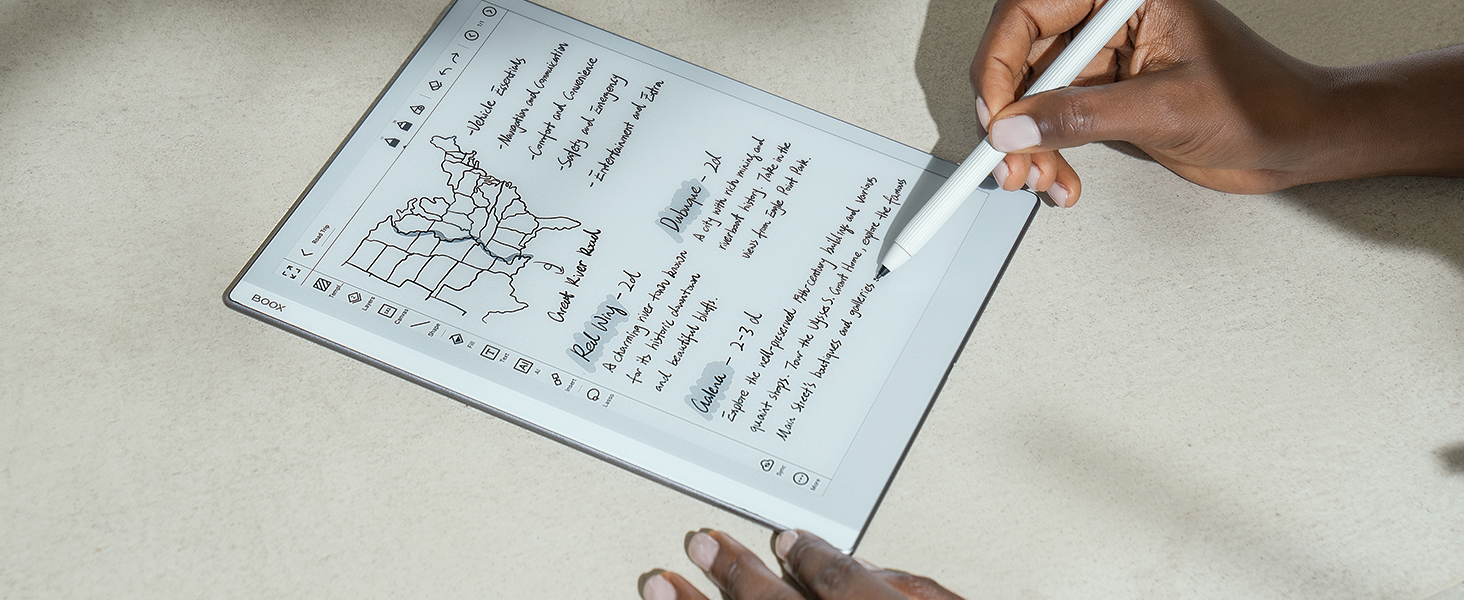 BOOX
Road Trip
1/1
Templ.
Layers
Canvas
Shape
Fill
Text
AI
AI
Insert
Lasso
Sync
More
-Vehicle Essentials
-Navigation and Communication
-Comfort and Convenience
-Safety and Emergency
-Entertainment and Extra
Great River Road
Red Wing - 2d
A charming river town known
for its historic downtown
and beautiful bluffs.
Dubuque - 2d
A city with rich mining and
riverboat history. Take in the
views from Eagle Point Park.
Galena - 2-3 d
Explore the well-preserved 19th-century buildings and various
quaint shops. Tour the Ulysses S. Grant Home, explore the famous
Main Street's boutiques and galleries.